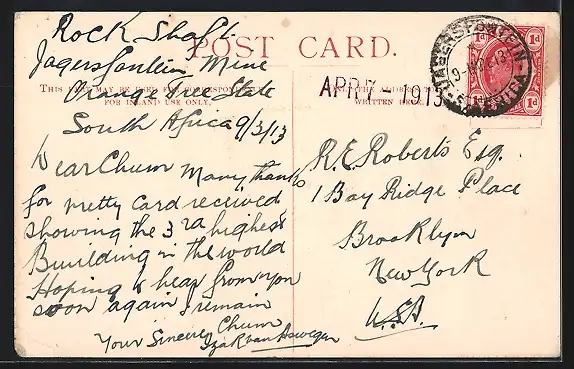 POST CARD.
THIS SPACE MAY BE USED FOR CORRESPONDENCE
FOR INLAND USE ONLY.
ONLY THE ADDRESS TO BE
WRITTEN HERE.
Rock Shaft
Jagersfontein Mine
Orange Free State
South Africa 9/3/13
Dear Chum Many thanks
for pretty card received
showing the 3rd highest
Building in the world
Hoping to hear from you
soon again I remain
Your Sincere Chum
Izak van Aswegen
APR 7 1913
JAGERSFONTEIN
S. AFRICA
1d 1d
1d
R. E. Roberts Esq.
1 Bay Ridge Place
Brooklyn
New York
U.S.A.